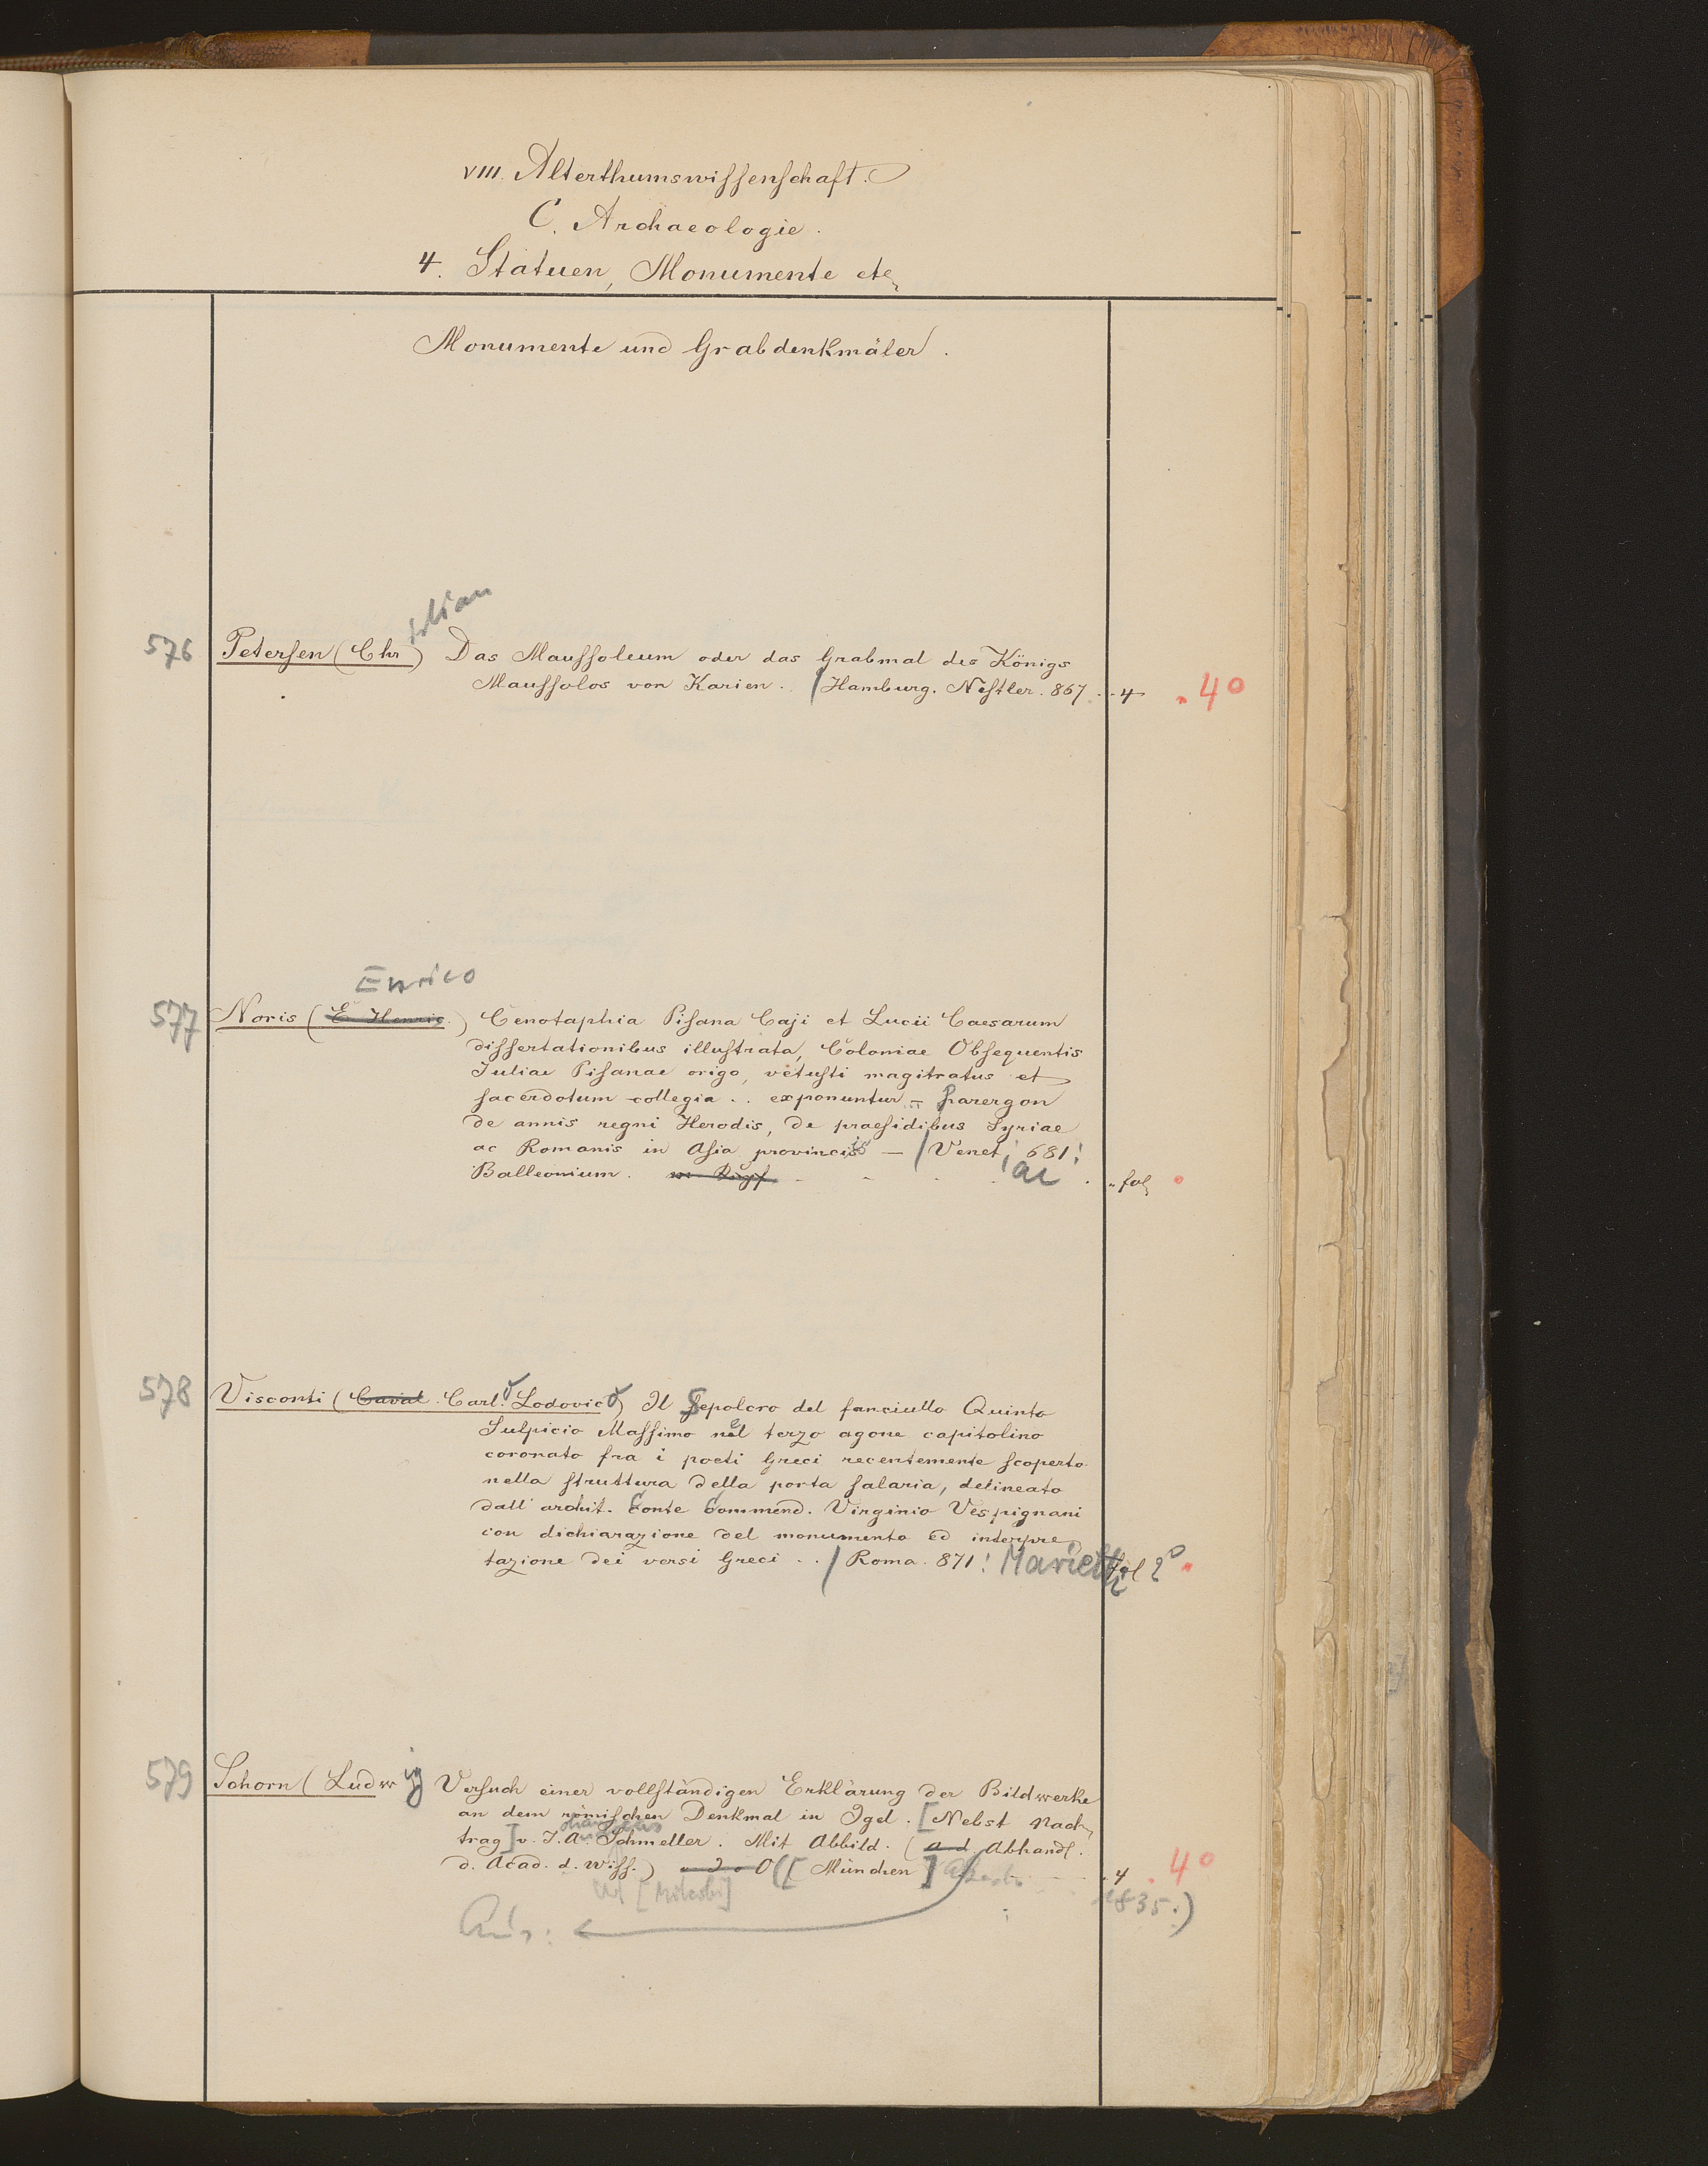 VIII. Alterthumswissenschaft.
C. Archaeologie.
4. Statuen, Monumente etc
Monumente und Grabdenkmäler.
istian
576 Petersen (Chr) Das Maussoleum oder das Grabmal des Königs
Maussolos von Karien. / Hamburg. Nestler. 867. 4 4°
Enrico
577 Noris (E. Henric.) Cenotaphia Pisana Caji et Lucii Caesarum
dissertationibus illustrata, Coloniae Obsequentis
Juliae Pisanae origo, vetusti magitratus et
sacerdotum collegia .. exponuntur – Parergon
de annis regni Herodis, de praesidibus Syriae
ac Romanis in Asia provinciis – / Venet: 681:
Balleonium. iae fol
578 Visconti (Caval. Carlo Lodovico) Il Sepolcro del fanciullo Quinto
Sulpicio Massimo nel terzo agone capitolino
coronato fra i poeti Greci recentemente scoperto
nella struttura della porta salaria, delineato
dall' archit. Conte Commend. Virginio Vespignani
con dichiarazione del monumento ed interpre
tazione dei versi Greci .. / Roma. 871: Marietti fol 2°
579 Schorn (Ludwig Versuch einer vollständigen Erklärung der Bildwerke
an dem römischen Denkmal in Igel. [Nebst Nach
trag] v. J. A. Schmeller. Mit Abbild. (a. d. Abhandl.
d. Acad. d. Wiss.) ([München] 4 4°
1835.)
Aus: